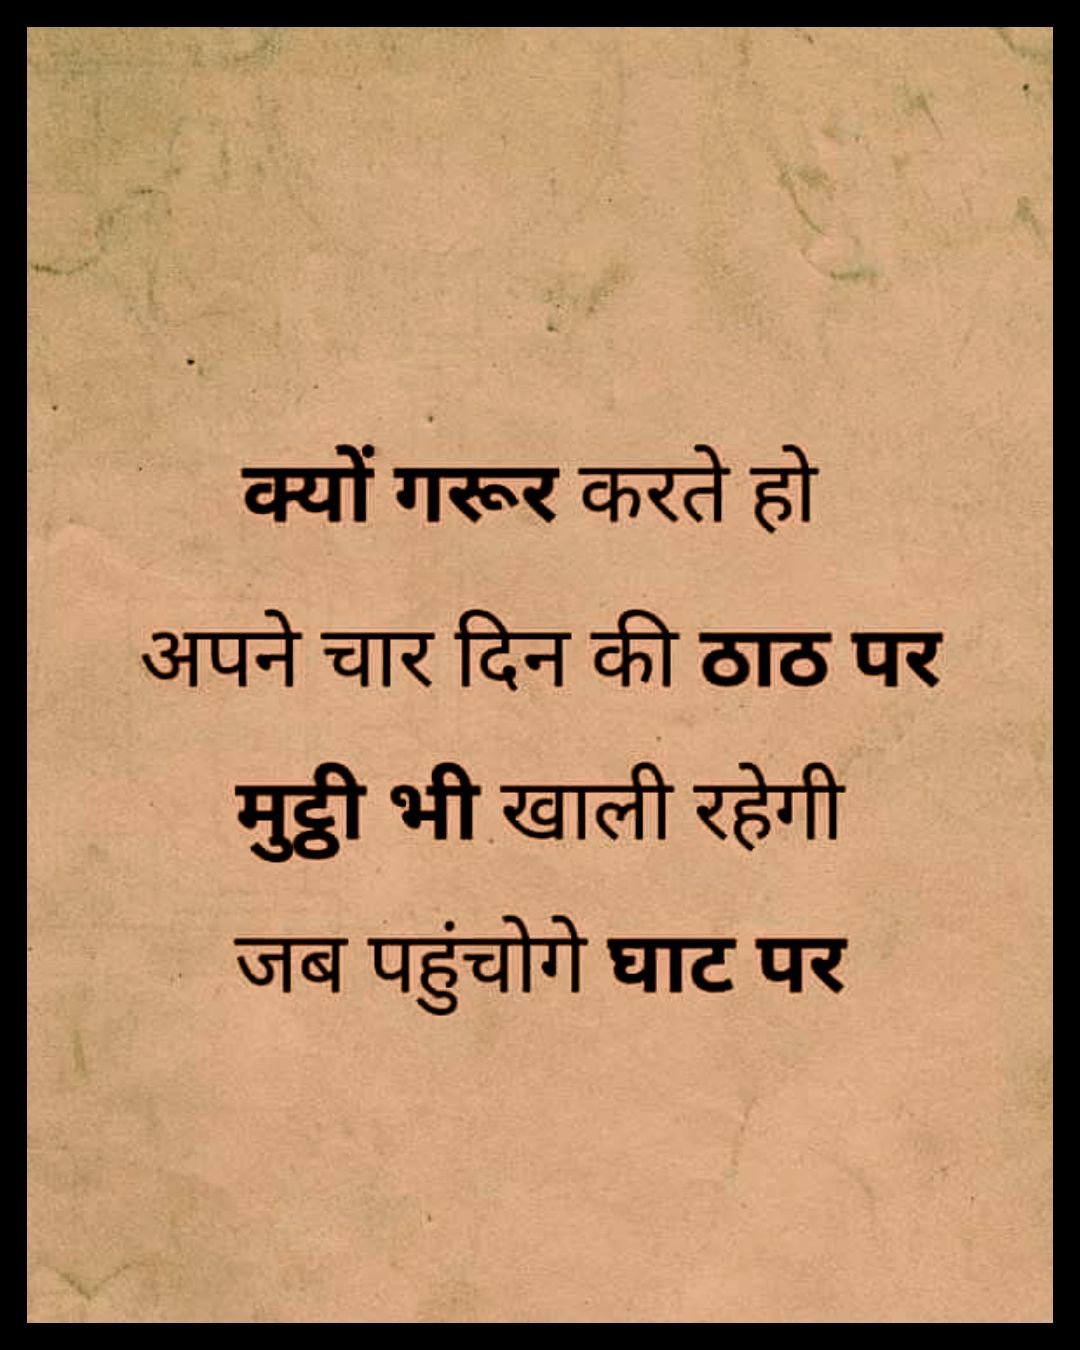 क्यों गरूर करते हो
अपने चार दिन की ठाठ पर
मुट्ठी भी खाली रहेगी
जब पहुंचोगे घाट पर